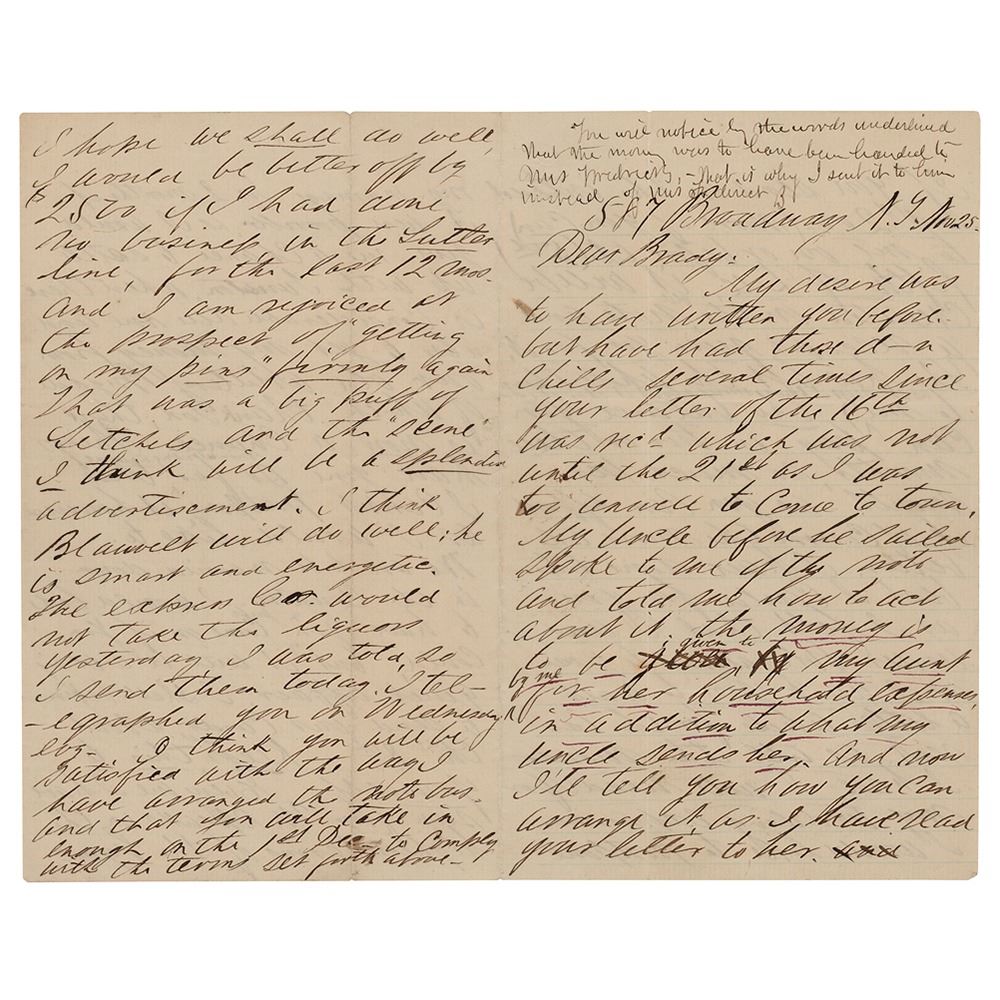 You will notice by the words underlined
that the money was to have been handed to
Mrs Fredricks, - that is why I sent it to him
instead of Mrs F direct
587 Broadway N.Y. Nov 25.
Dear Brady:
My desire was
to have written you before.
but have had those d-n
Chills several times since
your letter of the 16th
was recd which was not
until the 21st as I was
too unwell to come to town.
My Uncle before he sailed
spoke to me of the note
and told me how to act
about it the money is
to be given to my Aunt
by me
for her household expenses,
in addition to what my
Uncle sends her. And now
I'll tell you how you can
arrange it as I have read
your letter to her. and
I hope we shall do well,
I would be better off by
$2500 if I had done
no business in the Sutler
line, for the last 12 mos.
and I am rejoiced at
the prospect of "getting
on my pins" firmly again
That was a big puff of
Setchels and the "scene"
I think will be a splendid
advertisement. I think
Blauvelt will do well; he
is smart and energetic.
The express Co. would
not take the liquors
yesterday, I was told, so
I send them today. I tel-
-egraphed you on Wednesday
evg- I think you will be
satisfied with the way I
have arranged the note bus.
and that you will take in
enough on the 1st Dec to comply
with the terms set forth above-